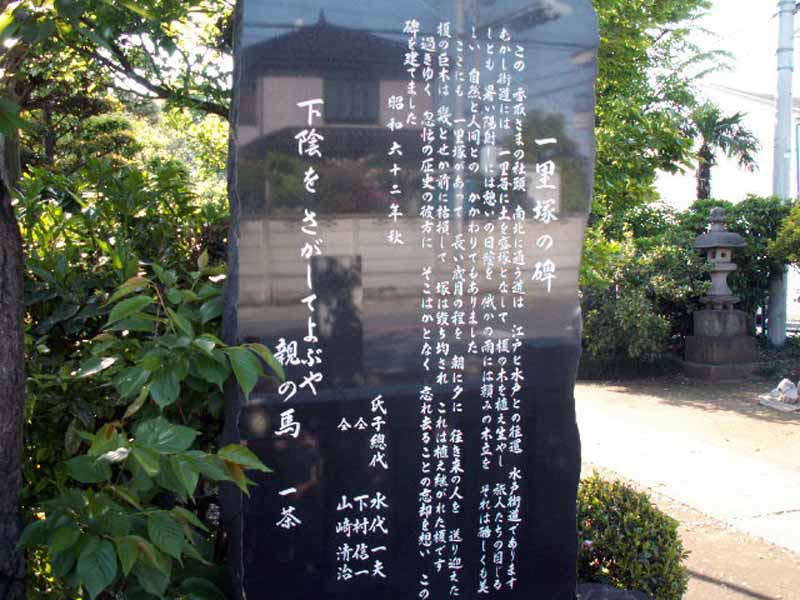 一里塚の碑
この 香取さまの社頭 南北に通う道は 江戸と水戸との往還 水戸街道であります
むかし街道には 一里毎に土を盛塚となして 榎の木を植え生やし 旅人たちの目じる
しとも 暑い陽射しには憩いの日陰を 俄かの雨には頼みの木立を それは優しくも美
しい 自然と人間との かかわりでもありました
ここにも 一里塚があって 長い歳月の程を 朝に夕に 往き来の人を 送り迎えた
榎の巨木は 幾とせか前に枯損して 塚は毀ち均され これは植え継がれた榎です
過ぎゆく 忽忙の歴史の彼方に そこはかとなく 忘れ去ることの忘却を想い この
碑を建てました
昭和六十二年秋
下陰を さがしてよぶや 親の馬 一茶
氏子總代 水代一夫
仝 下村信一
仝 山﨑清治